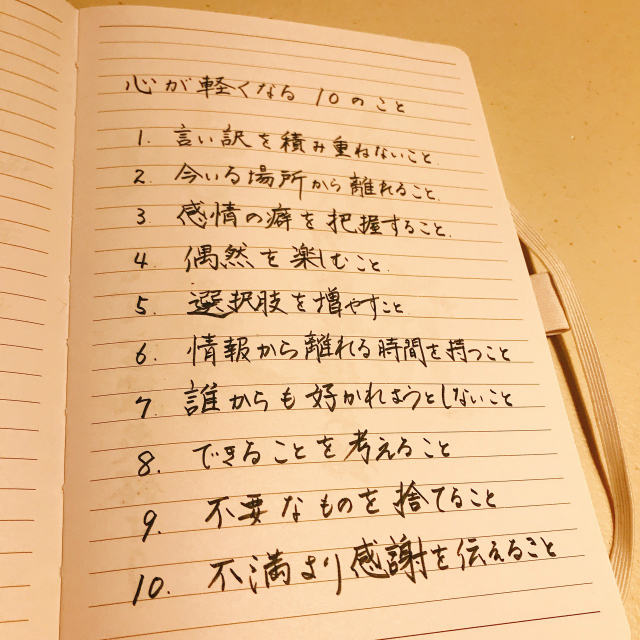 心が軽くなる 10のこと
1. 言い訳を積み重ねないこと.
2. 今いる場所から離れること.
3. 感情の癖を把握すること.
4. 偶然を楽しむこと.
5. 選択肢を増やすこと
6. 情報から離れる時間を持つこと
7. 誰からも好かれようとしないこと
8. できることを考えること
9. 不要なものを捨てること
10. 不満より感謝を伝えること